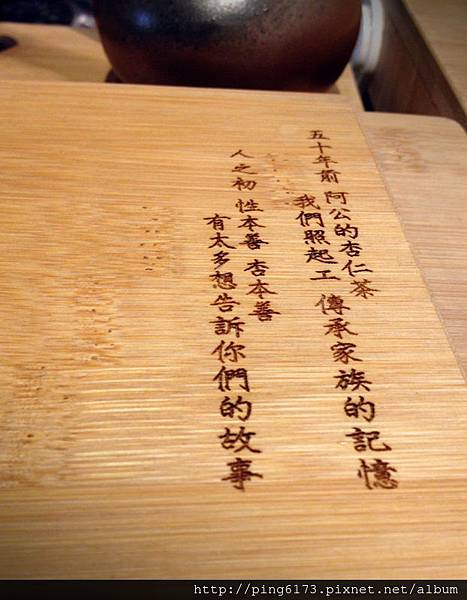 五十年前 阿公的杏仁茶
我們照起工 傳承家族的記憶
人之初 性本善 杏本善
有太多想告訴你們的故事
http://ping6173.pixnet.net/album